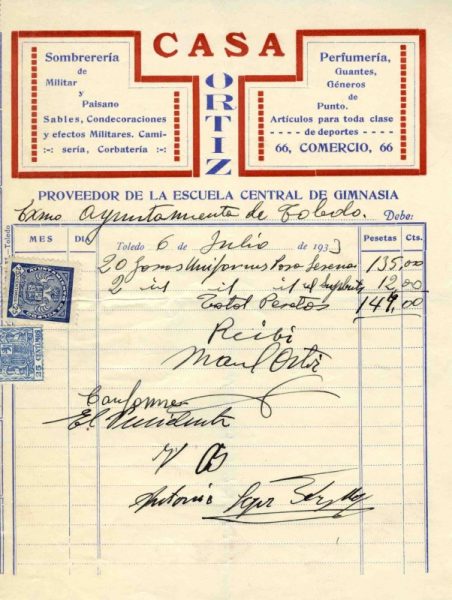 CASA
ORTIZ
Sombrerería
de
Militar
y
Paisano
Sables, Condecoraciones
y efectos Militares. Cami-
:-: sería, Corbatería :-:
Perfumería,
Guantes,
Géneros
de
Punto.
Artículos para toda clase
---- de deportes ----
66, COMERCIO, 66
PROVEEDOR DE LA ESCUELA CENTRAL DE GIMNASIA
Exmo Ayuntamiento de Toledo. Debe:
MES DIA Toledo 6 de Julio de 1933 Pesetas Cts.
20 Uniformes 135,00
2 id id id 12,00
Total Pesetas 147,00
Recibí
Manl Ortiz
Conforme
El Presidente
Antonio
25 CENTIMOS